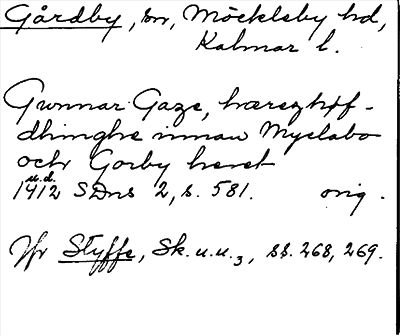 Gårdby, sn, Möckleby hd,
Kalmar l.
Gunnar Gaze, hæreztzhøf-
dhinghe innan Myclabo
och Gorby heret
u.d.
1412 SDns 2, s. 581. orig.
Jfr Styffe, Sk.u.u.3, ss. 268, 269.